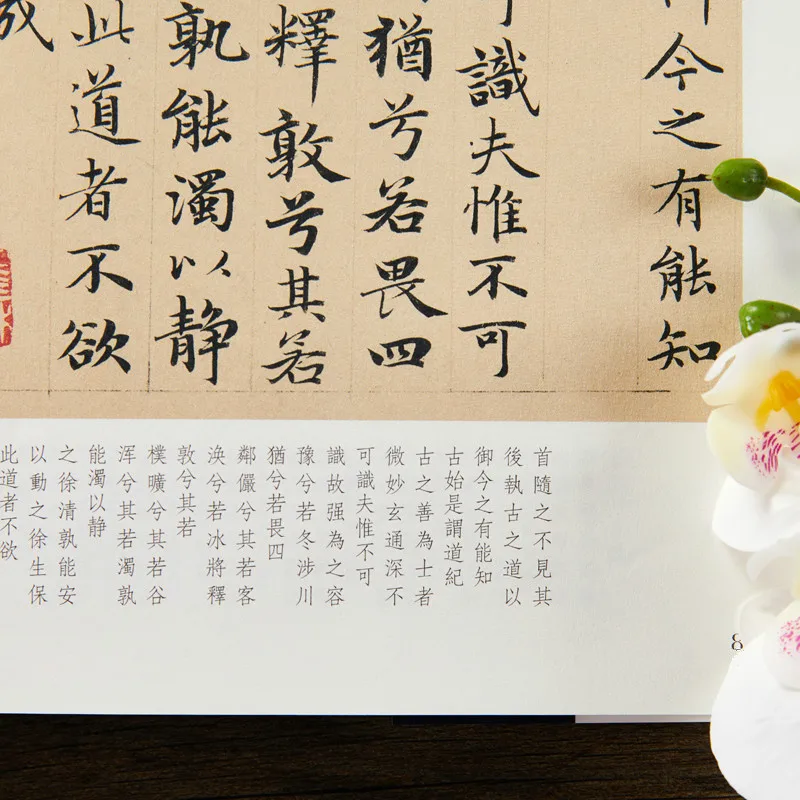 今之有能知
識夫惟不可
猶兮若畏四
釋敦兮其若
孰能濁以静
此道者不欲
首隨之不見其
後執古之道以
御今之有能知
古始是謂道紀
古之善為士者
微妙玄通深不
可識夫惟不可
識故强為之容
豫兮若冬涉川
猶兮若畏四
鄰儼兮其若客
渙兮若冰將釋
敦兮其若
樸曠兮其若谷
浑兮其若濁孰
能濁以静
之徐清孰能安
以動之徐生保
此道者不欲
8